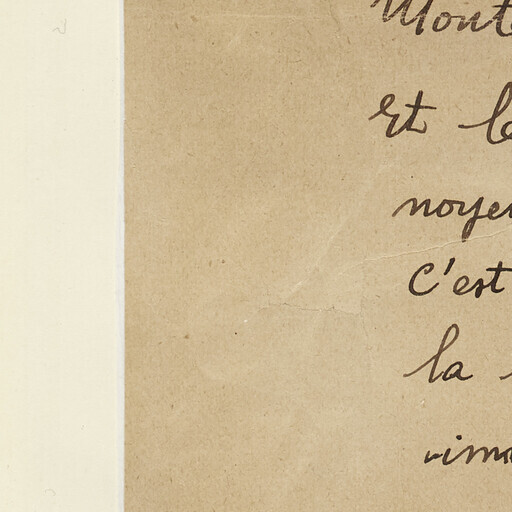 Mont
Et le
noye
C'est
la
ima